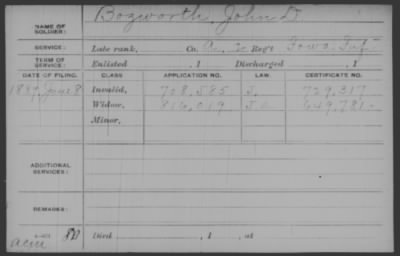 NAME OF SOLDIER: Bozworth, John D.
SERVICE: Late rank, Co. A, 20 Reg't Iowa Inf
TERM OF SERVICE: Enlisted , 1 Discharged , 1
DATE OF FILING. CLASS APPLICATION NO. LAW. CERTIFICATE NO.
1889 June 8 Invalid, 708,585 J. 729,317
Widow, 816,019 649,781
Minor,
ADDITIONAL SERVICES:
REMARKS:
Died , 1 , at